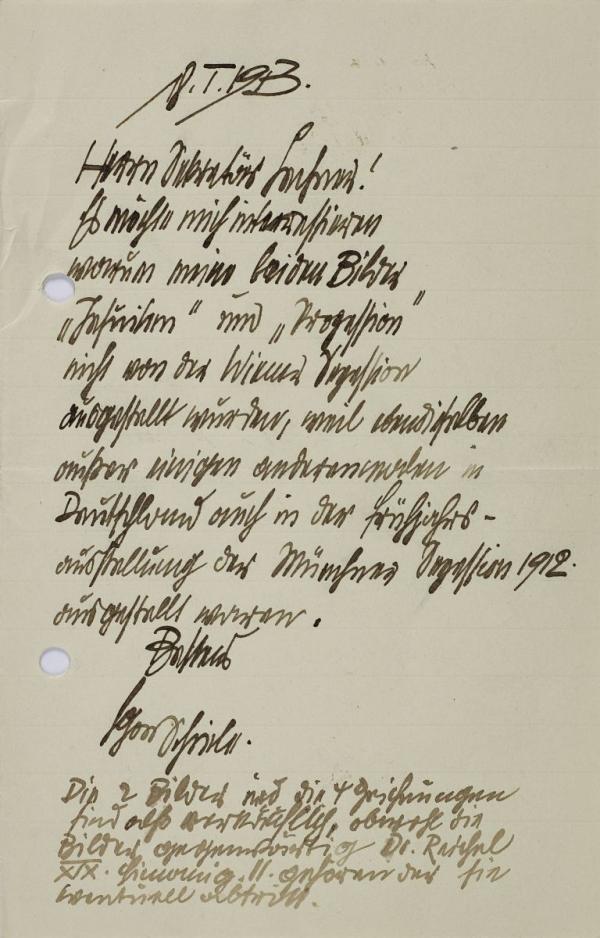 8.I.1913.
Herrn Sekretär Lechner!
Es möchte mich interessieren
warum meine beiden Bilder
„ “ und „Prozession“
nicht von der Wiener Sezession
ausgestellt wurden, weil ebendiselben
außer einigen anderenmalen in
Deutschland auch in der Frühjahrs-
ausstellung der Münchner Sezession 1912.
ausgestellt waren.
Bestens
Egon Schiele.
Die 2 Bilder und die 4 Zeichnungen
sind also verkäuflich, obwohl die
Bilder gegenwärtig Dr. Reichel
XIX. 11. gehören der sie
eventuell abtritt.